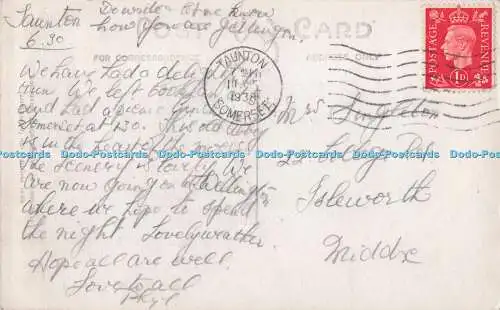 Taunton
6.30
Do write & let me know
how you are getting on.
POST CARD
FOR CORRESPONDENCE
ADDRESS ONLY
TAUNTON
1938
SOMERSET
POSTAGE
REVENUE
1D
We have had a
run. We left
and had a picnic
Somerset at 1.30. This old Abbey
is in the heart of the
The scenery is lovely. We
are now going on to Wellington
where we hope to spend
the night. Lovely weather.
Hope all are well.
Love to all
Phyl
Mrs
22
Isleworth
Middx
D-Postcards D-Postcards D-Postcards D-Postcards D-Postcards D-Postcards D-Postcards